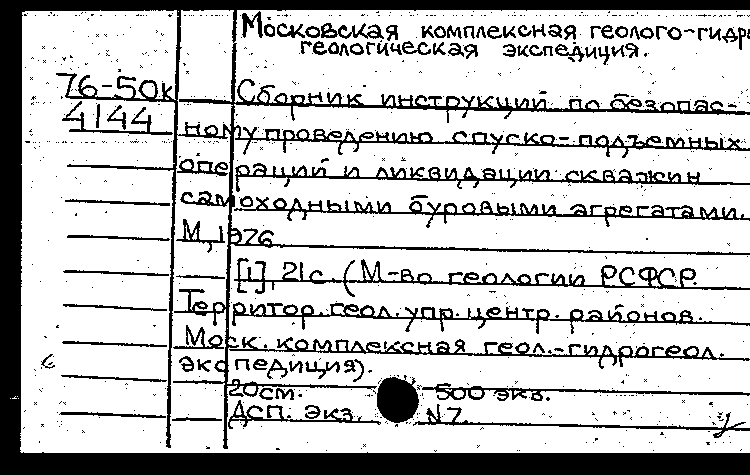 Московская комплексная геолого-гидро
геологическая экспедиция.
76-50к
4144
Сборник инструкций по безопас-
ному проведению спуско-подъемных
операций и ликвидации скважин
самоходными буровыми агрегатами.
М, 1976
[1], 21с. (М-во геологии РСФСР.
Территор. геол. упр. центр. районов.
Моск. комплексная геол.-гидрогеол.
экспедиция).
20см. 500 экз.
ДСП. Экз. N7.